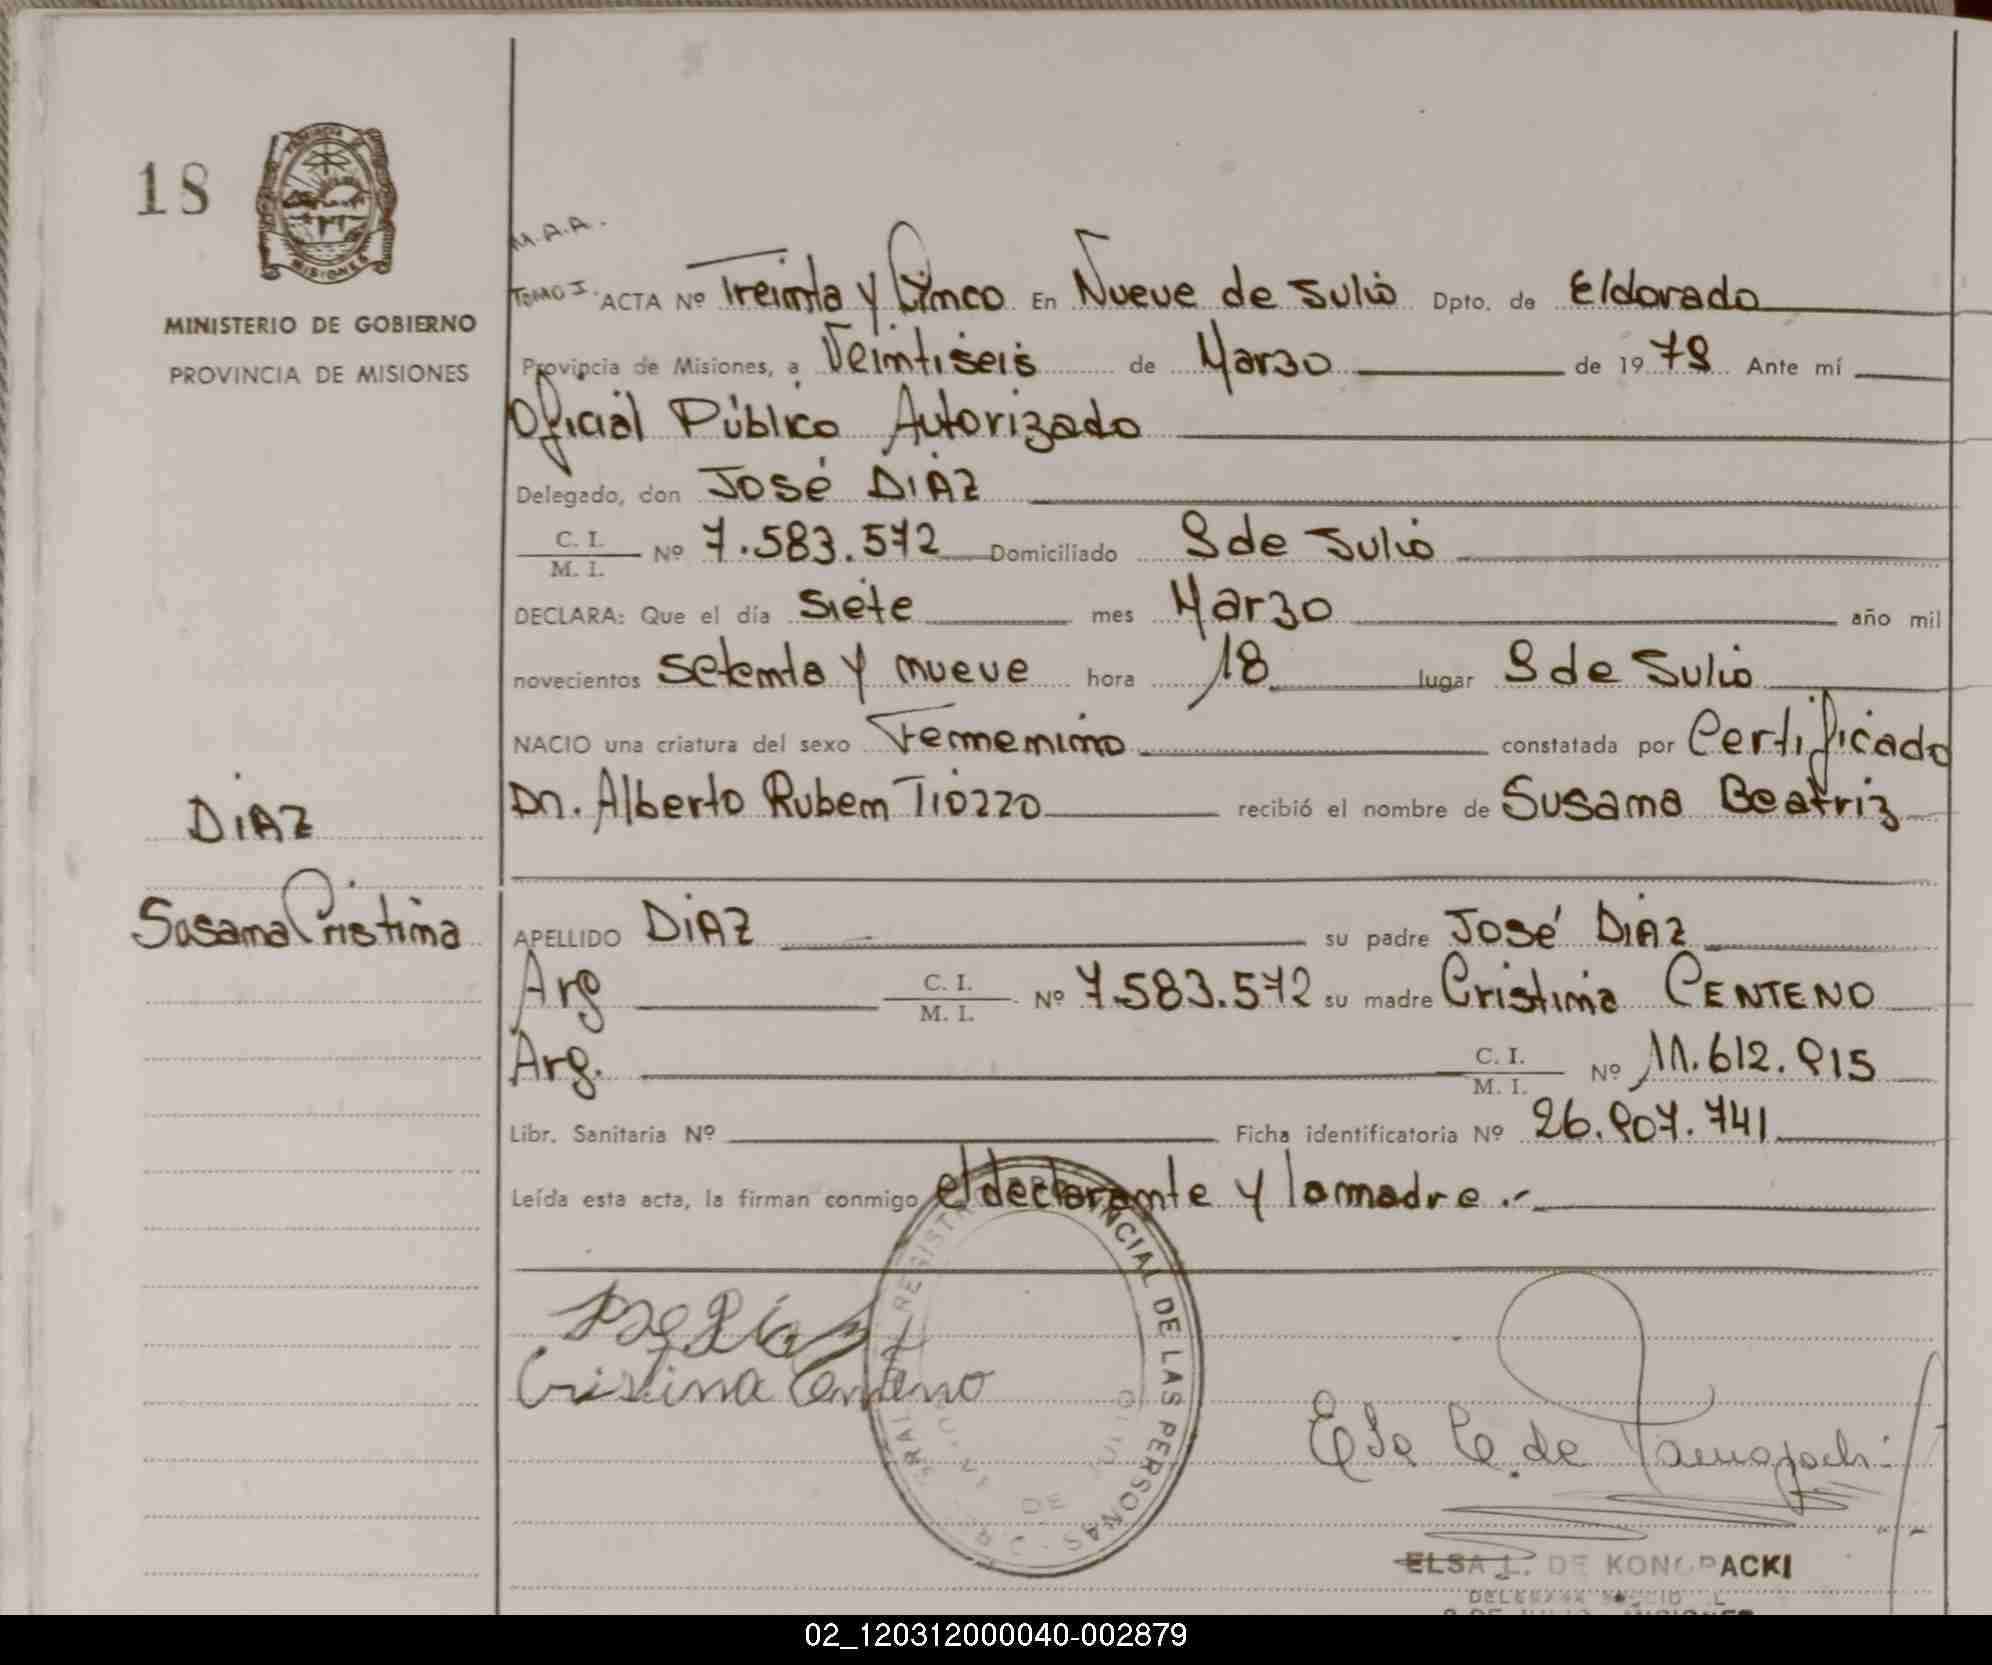 18
MISIONES
MINISTERIO DE GOBIERNO
PROVINCIA DE MISIONES
DIAZ
Susana Cristina
M.A.A.
TOMO I. ACTA Nº Treinta y Cinco En Nueve de Julio Dpto. de Eldorado
Provincia de Misiones, a Veintiseis de Marzo de 1979 Ante mí
Oficial Público Autorizado
Delegado, don José DIAZ
C. I.
M. I. Nº 7.583.572 Domiciliado 9 de Julio
DECLARA: Que el día siete mes Marzo año mil
novecientos setenta y nueve hora 18 lugar 9 de Julio
NACIO una criatura del sexo Femenino constatada por Certificado
Dn. Alberto Ruben Tiozzo recibió el nombre de Susana Beatriz
APELLIDO DIAZ su padre José DIAZ
Arg C. I.
M. I. Nº 7.583.572 su madre Cristina CENTENO
Arg. C. I.
M. I. Nº 11.612.915
Libr. Sanitaria Nº Ficha identificatoria Nº 26.907.741
Leída esta acta, la firman conmigo el declarante y la madre.-
DE LAS PERSONAS
DE JULIO
Cristina Centeno
ELSA L. DE KONOPACKI
02_120312000040-002879